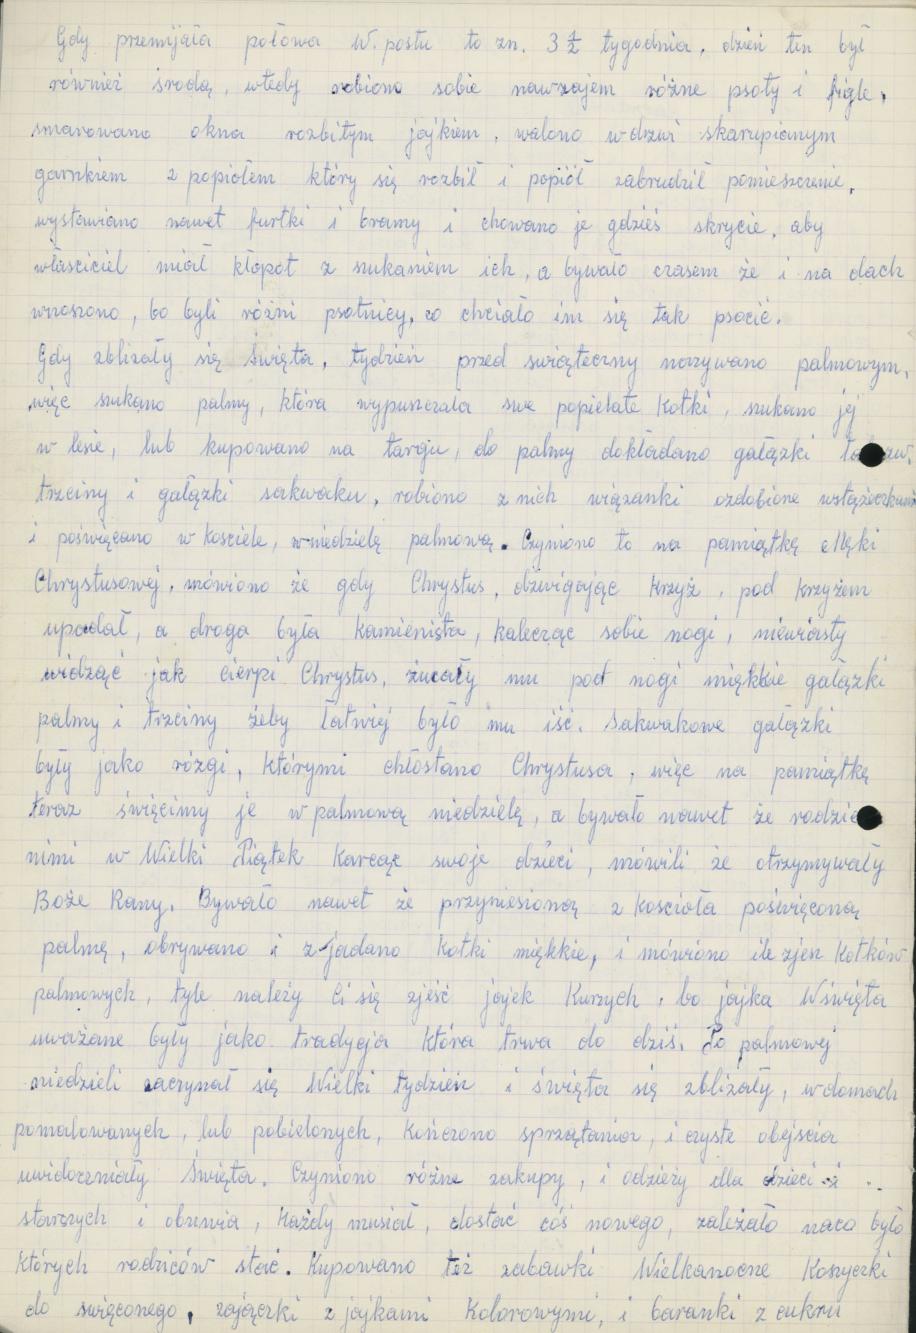 Gdy przemijała połowa W. postu to zn. 3 1/2 tygodnia, dzień ten był
również środą, wtedy robiono sobie nawzajem różne psoty i figle,
smarowano okna rozbitym jajkiem, walono w drzwi skarupianym
garnkiem z popiołem który się rozbił i popiół zabrudził pomieszczenie,
wystawiano nawet furtki i bramy i chowano je gdzieś skrycie, aby
właściciel miał kłopot z szukaniem ich, a bywało czasem że i na dach
wnoszono, bo byli różni psotnicy, co chciało im się tak psocić.
Gdy zbliżały się święta, tydzień przed świąteczny nazywano palmowym,
więc szukano palmy, która wypuszczała swe popielate Kotki, szukano jej
w lesie, lub kupowano na targu, do palmy dokładano gałązki
trzciny i gałązki sakwaku, robiono z nich wiązanki ozdobione wstążeczkami
i poświęcano w Kościele, w niedzielę palmową. Czyniono to na pamiątkę Męki
Chrystusowej, mówiono że gdy Chrystus, dźwigając Krzyż, pod krzyżem
upadał, a droga była kamienista, kalecząc sobie nogi, niewiasty
widząć jak cierpi Chrystus, żucały mu pod nogi miękkie gałązki
palmy i trzciny żeby łatwiej było mu iść. Sakwakowe gałązki
były jako rózgi, którymi chłostano Chrystusa, więc na pamiątkę
teraz święcimy je w palmową niedzielę, a bywało nawet że rodzice
nimi w Wielki Piątek Karcąc swoje dzieci, mówili że otrzymywały
Boże Rany. Bywało nawet że przyniesioną z Kościoła poświęconą
palmę, obrywano i z-jadano Kotki miękkie, i mówiono ile zjesz Kotków
palmowych, tyle należy Ci się zjeść jajek Kurzych, bo jajka W święta
uważane były jako tradycja która trwa do dziś. Po palmowej
niedzieli zaczynał się Wielki tydzień i święta się zbliżały, w domach
pomalowanych, lub pobielonych, Kończono sprzątania, i czyste obejścia
uwidoczniały Święta. Czyniono różne zakupy, i odzieży dla dzieci i
starszych i obuwia, Każdy musiał, dostać coś nowego, zależało na co było
Których rodziców stać. Kupowano też zabawki Wielkanocne Koszyczki
do święconego, zajączki z jajkami Kolorowymi, i baranki z cukru